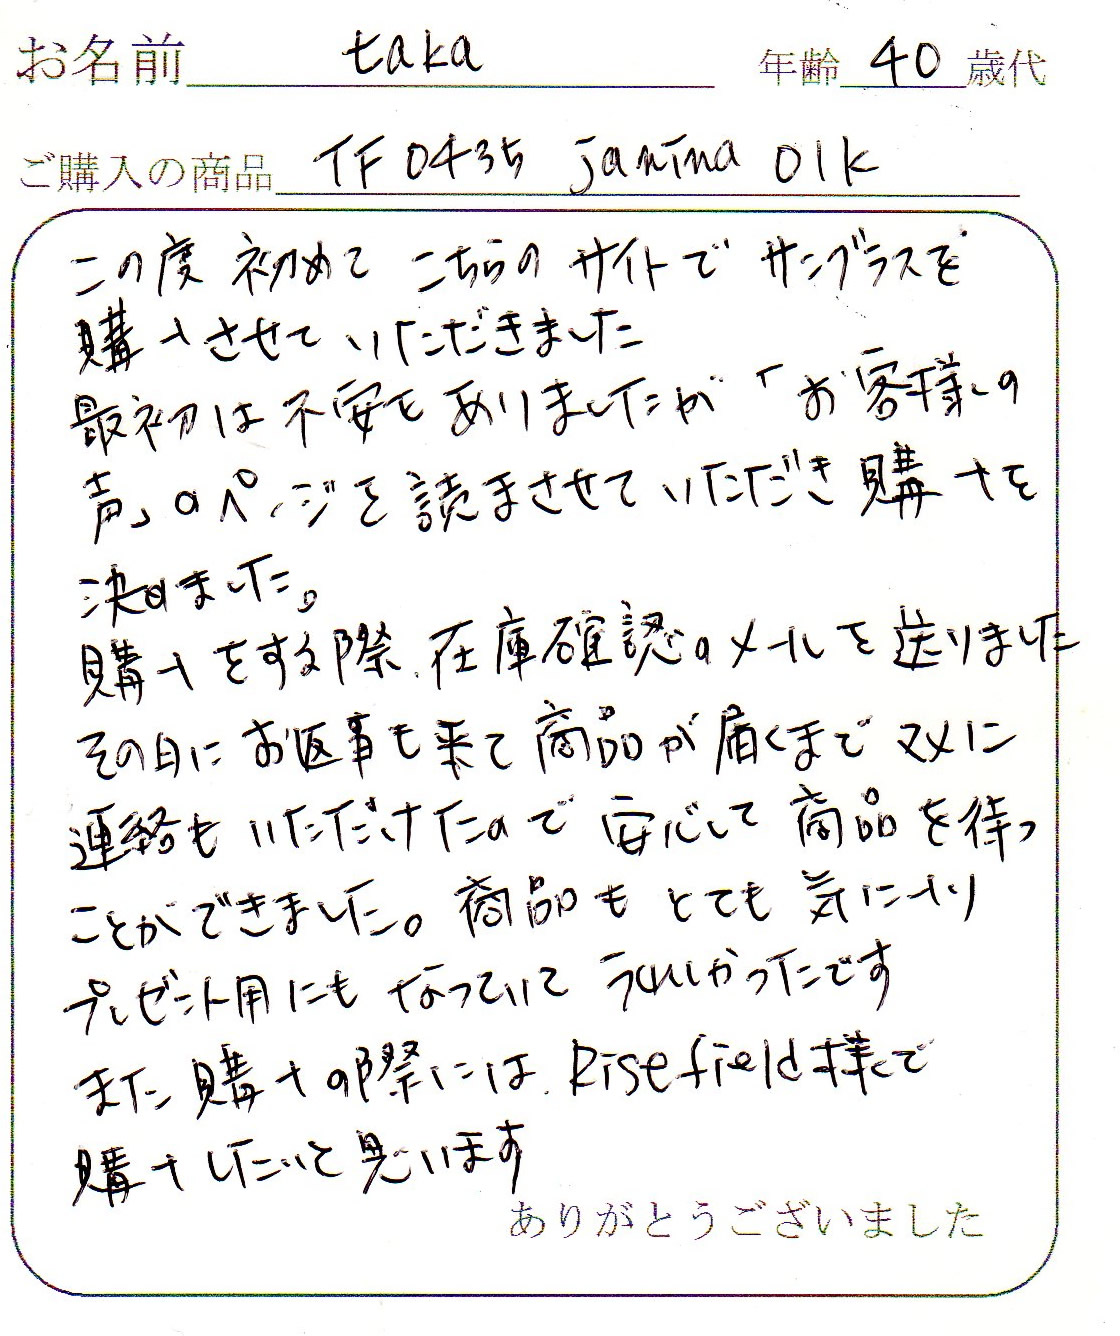 お名前 taka 年齢 40 歳代
ご購入の商品 TF0435 janina 01k
この度 初めて こちらの サイトで サングラスを
購入させて いただきました
最初は 不安も ありましたが 「お客様の
声」のページを 読まさせて いただき 購入を
決めました。
購入をする際、在庫確認のメールを 送りました
その日に お返事も来て 商品が 届くまで マメに
連絡も いただけたので 安心して 商品を待つ
ことができました。商品も とても 気に入り
プレゼント用にも なっていて うれしかったです
また 購入の際には Risefield様で
購入したいと思います
ありがとうございました